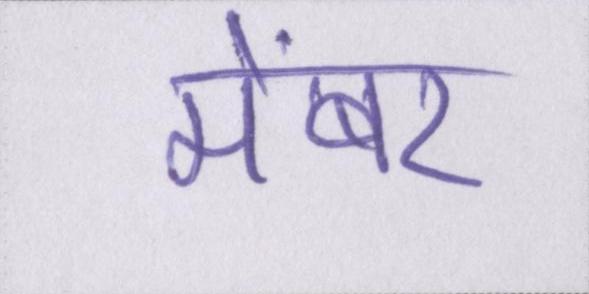 मेंबर